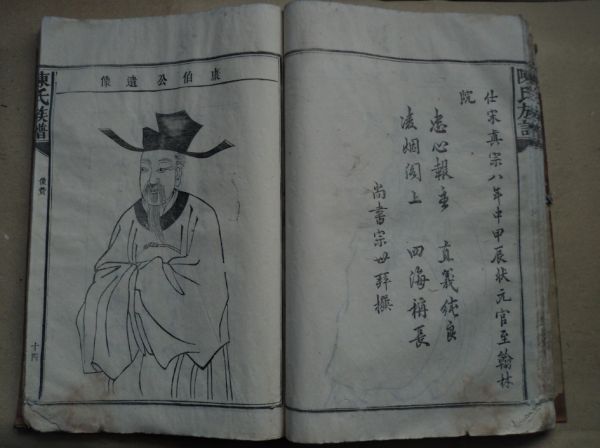 陳氏族譜
仕宋真宗八年中甲辰狀元官至翰林
院
忠心報
直義純良
凌烟閣上 四海稱長
尚書宗世 撰
康伯公遺像
陳氏族譜
像贊
十四